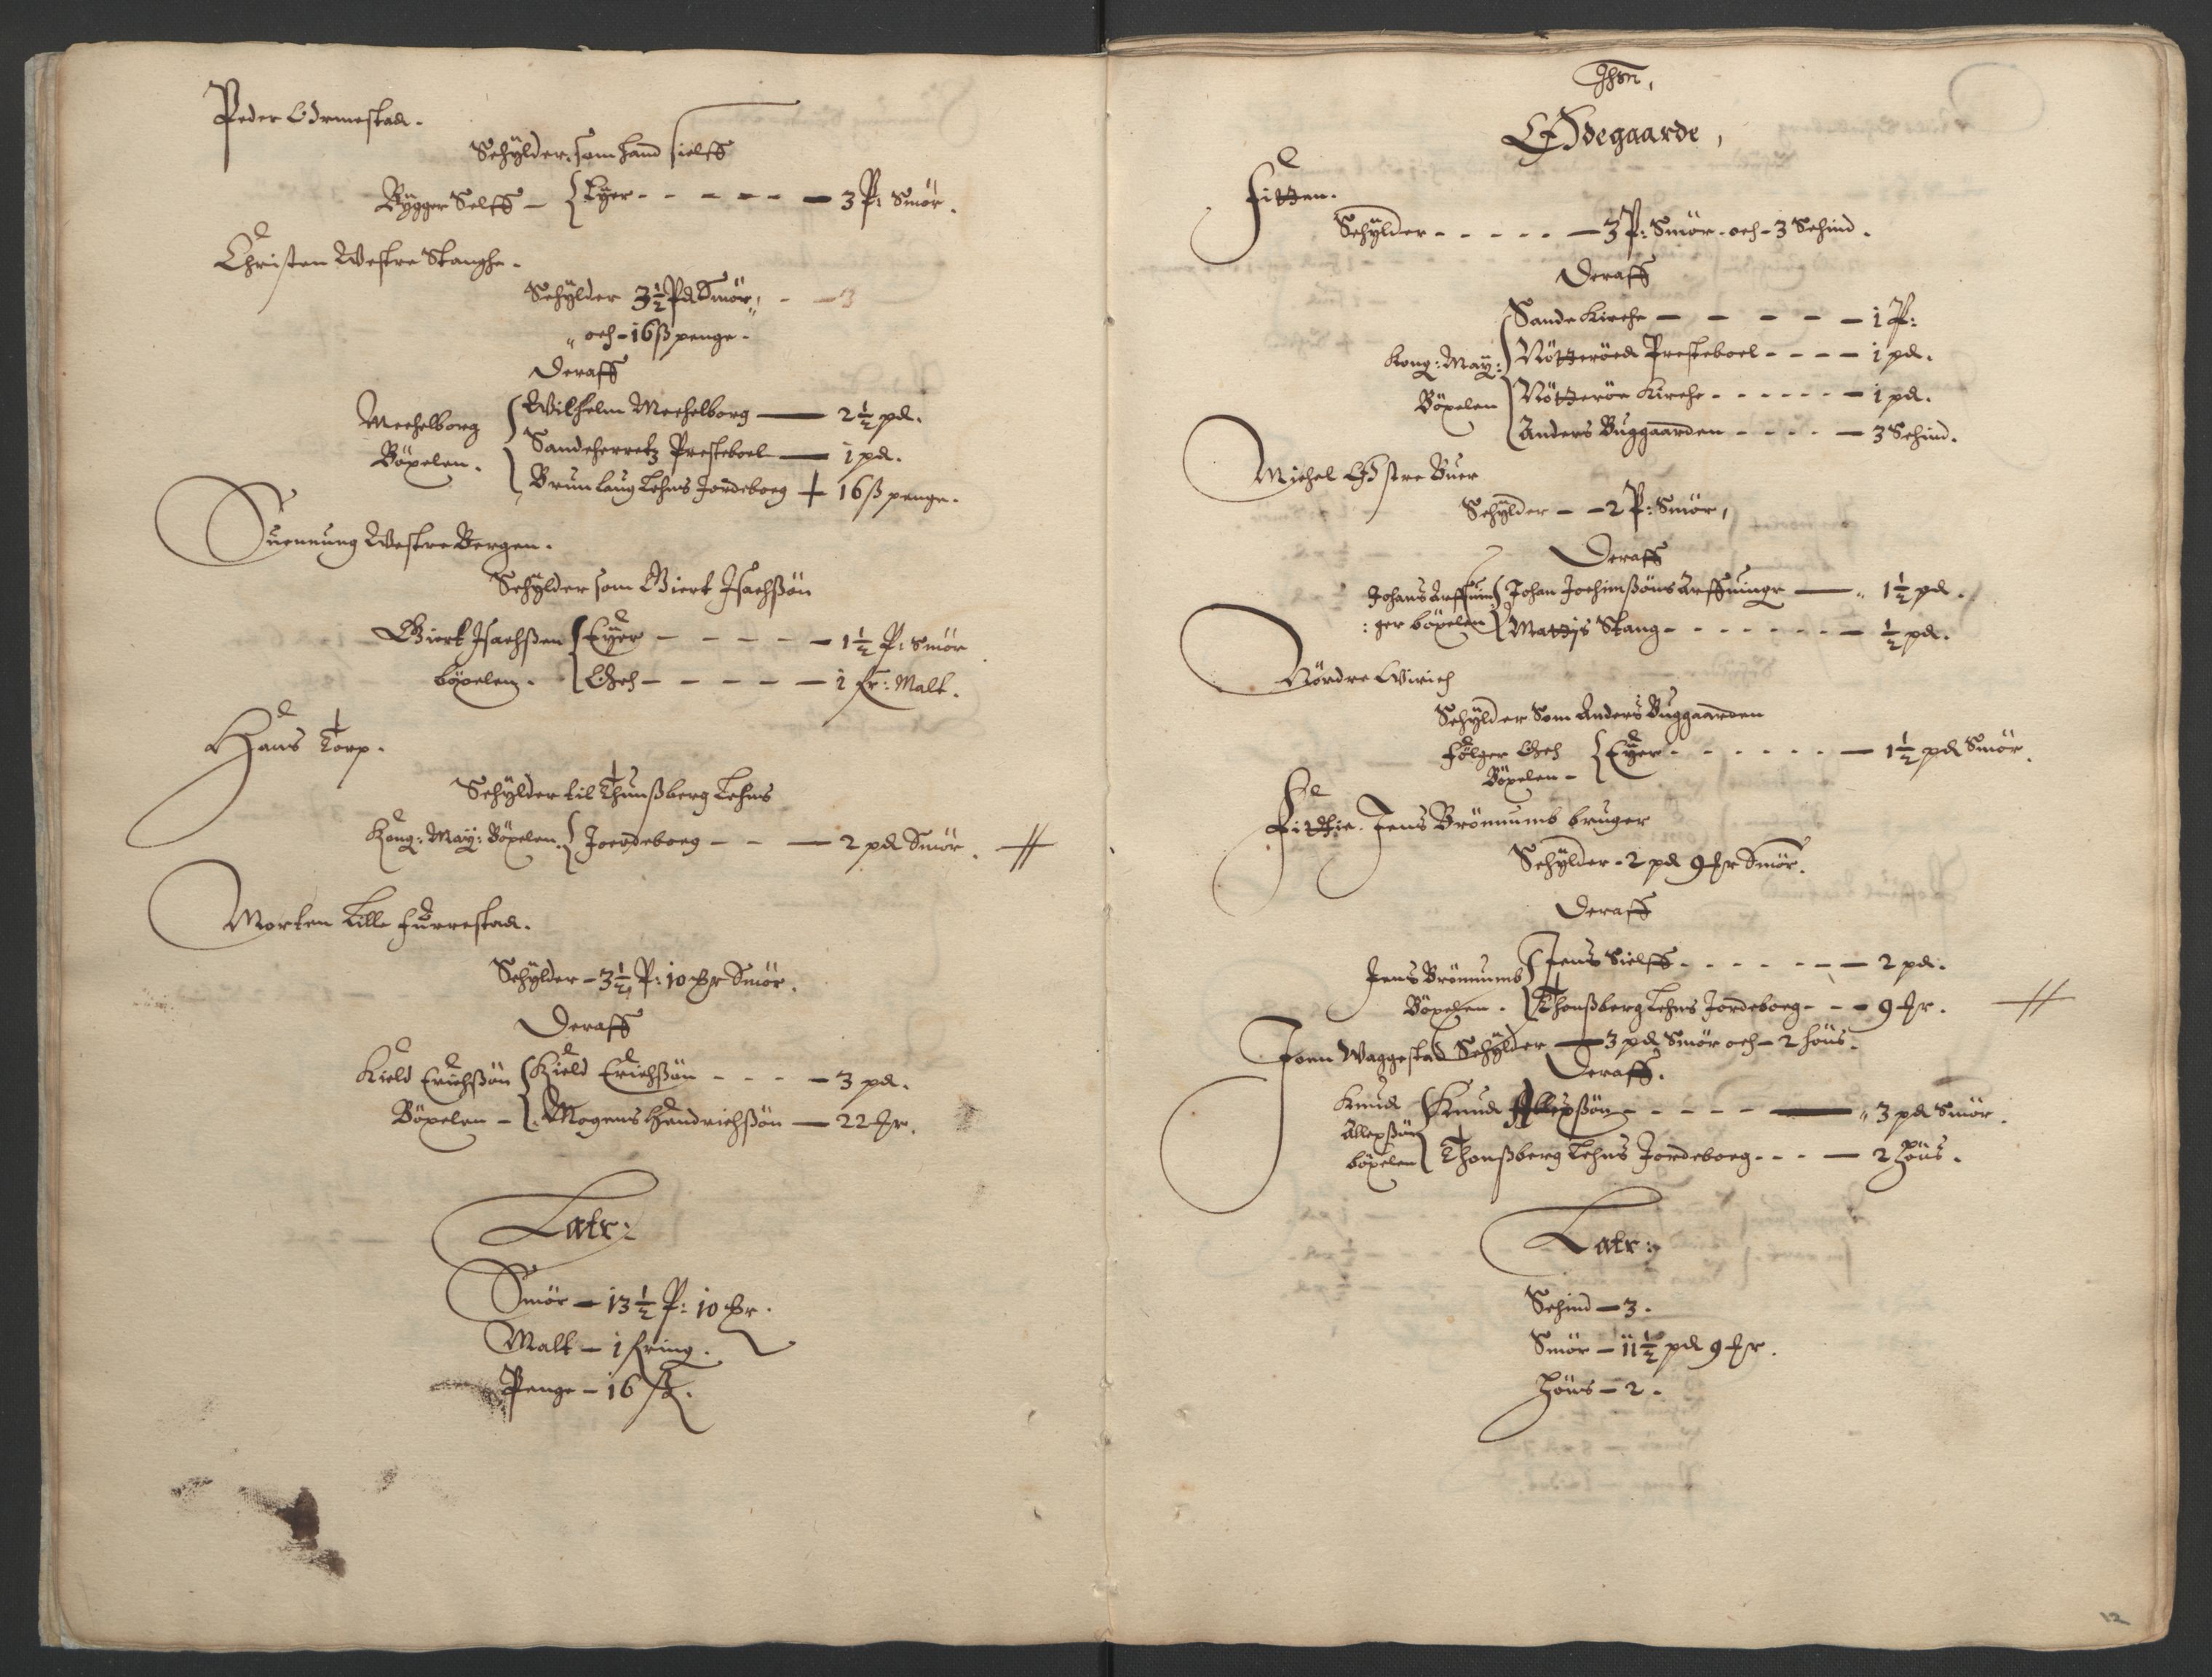 Peder Ormestad.
Schÿlder, som hand sielff
Bÿgger Selff — Eÿer — 3 P: Smör.
Christen Westre Stanghe.
Schÿlder 3½ Pd Smör, — 3
och — 16 ß penge.
Deraff
Mechelborg Wilhelm Mechelborg — 2½ pd.
Böxelen. Sandeherretz Presteboel — 1 pd.
Brunlaug Lehns Jordeboeg + 16 ß penge.
Suennung Westre Bergen.
Schÿlder som Giert Isachßön
Giert Isachßen Eÿer — 1½ P: Smör
böxelen. Och — 1 fr: Malt.
Hans Torp.
Schÿlder til Thunßberg Lehns
Kong: Maÿ: Böxelen. Joerdeboeg — 2 pd Smör.
Morten Lille Furrestad.
Schÿlder — 3½ P: 10 mr Smör.
Deraff
Kield Erichßön Kield Erichßön — 3 pd.
Böxelen — Mogens Hendrichßön — 22 mr.
Latr:
Smör — 13½ P: 10 mr.
Malt — 1 fring.
Penge — 16 ß.
Jhm,
Ödegaarde,
Fitzen.
Schÿlder — 3 P: Smör. och — 3 Schind.
Deraff
Sande Kirche — 1 P:
Kong: Maÿ: Nötteröed Presteboel — 1 pd.
Böxelen Nötteröe Kirche — 1 pd.
Anders Buggaarden — 3 Schind.
Michel Östre Buer
Schÿlder — 2 P: Smör,
Deraff
Johans Arffuin Johan Jochimßöns Arffuinge — 1½ pd.
:ger böxelen Mattis Stang — ½ pd.
Nördre Wirich
Schÿlder Som Anders Buggaarden
Fölger Och Eÿer — 1½ pd Smör.
Böxelen —
Fitzie. Jens Brönnums bruger
Schÿlder — 2 pd 9 mr Smör.
Deraff
Jens Brönnums Jens Sielff — 2 pd.
Böxelen. Thonßberg Lehns Jordeboeg — 9 mr.
Joen Waggestad Schÿlder — 3 pd Smör och — 2 höns.
Deraff.
Knud Knud Allexßön — 3 pd Smör.
Allexßön
böxelen Thonßberg Lehns Jordeboeg — 2 höns.
Latr:
Schind — 3.
Smör — 11½ pd 9 mr.
Höns — 2.
12